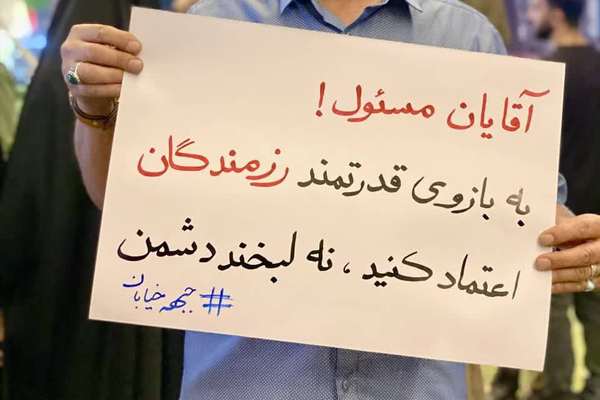 آقایان مسئول!
به بازوی قدرتمند رزمندگان
اعتماد کنید، نه لبخند دشمن
#جبهه_خیابان